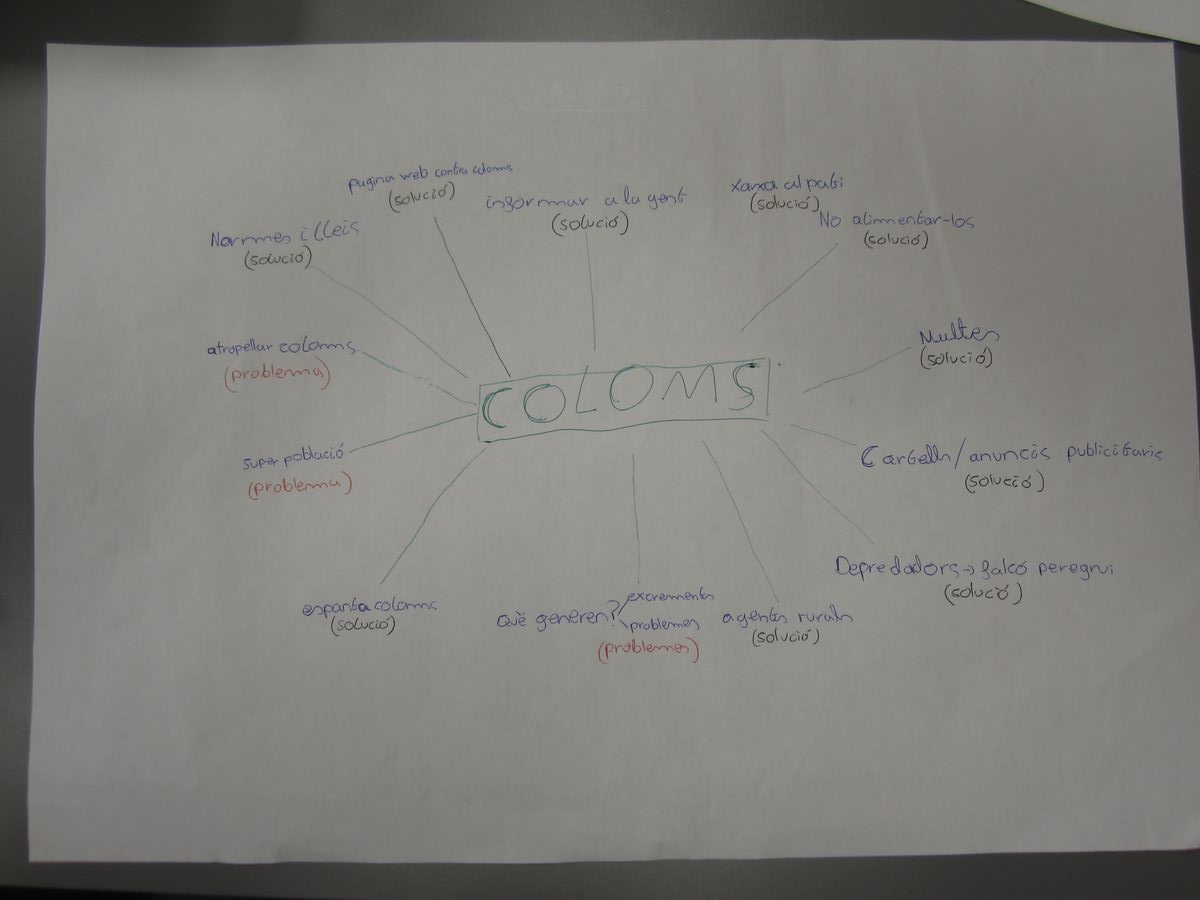 pagina web contra coloms
(solució)
informar a la gent
(solució)
xarxa al pati
(solució)
No alimentar-los
(solució)
Normes i lleis
(solució)
atropellar coloms
(problema)
Multes
(solució)
COLOMS
super població
(problema)
Cartells/anuncis publicitaris
(solució)
Depredadors → falcó peregrui
(solució)
espanta coloms
(solució)
Què generen?
excrements
problemes
(problemes)
agents rurals
(solució)